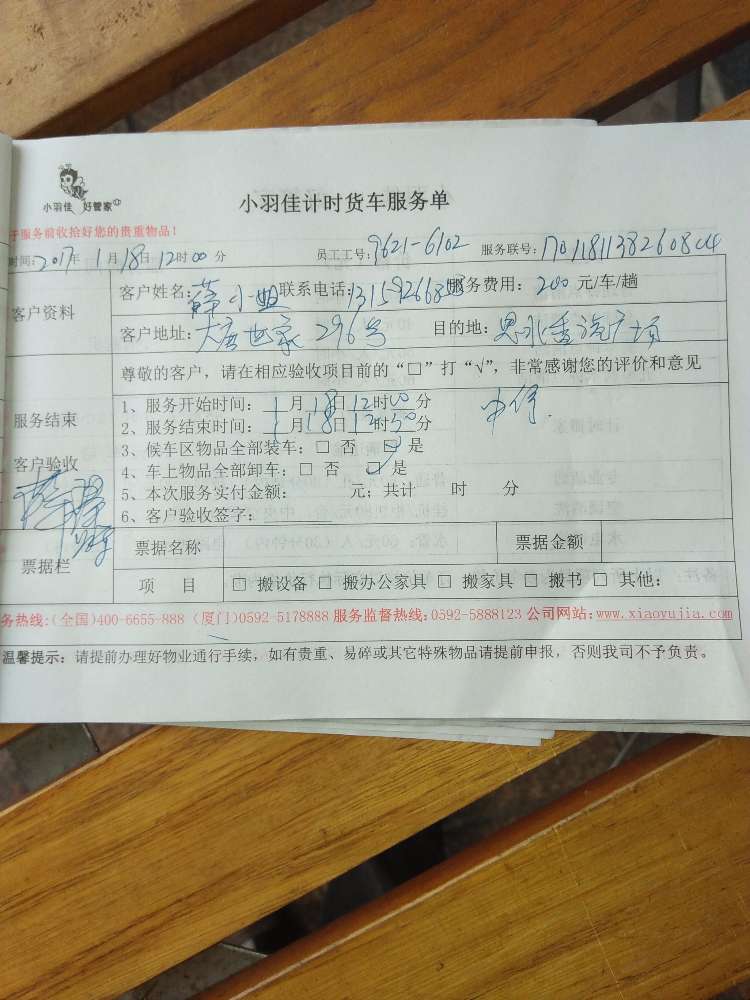 小羽佳 好管家
小羽佳计时货车服务单
于服务前收拾好您的贵重物品!
时间:2017年 1月18日12时00分 员工工号:9621-6102 服务联号:
客户资料
客户姓名:薛小姐 联系电话: 服务费用: 200 元/车/趟
客户地址:大唐世家 296号 目的地:
尊敬的客户,请在相应验收项目前的“□”打“√”,非常感谢您的评价和意见
服务结束
客户验收
1、服务开始时间: 1月18日12时00分
2、服务结束时间: 1月18日 时50分
3、候车区物品全部装车:□ 否 ☑ 是
4、车上物品全部卸车:□ 否 ☑ 是
5、本次服务实付金额: 元;共计 时 分
6、客户验收签字:
票据栏
票据名称 票据金额
项 目 □ 搬设备 □ 搬办公家具 □ 搬家具 □ 搬书 □ 其他:
务热线:(全国)400-6655-888 (厦门)0592-5178888 服务监督热线:0592-5888123 公司网站:www.xiaoyujia.com
温馨提示:请提前办理好物业通行手续,如有贵重、易碎或其它特殊物品请提前申报,否则我司不予负责。